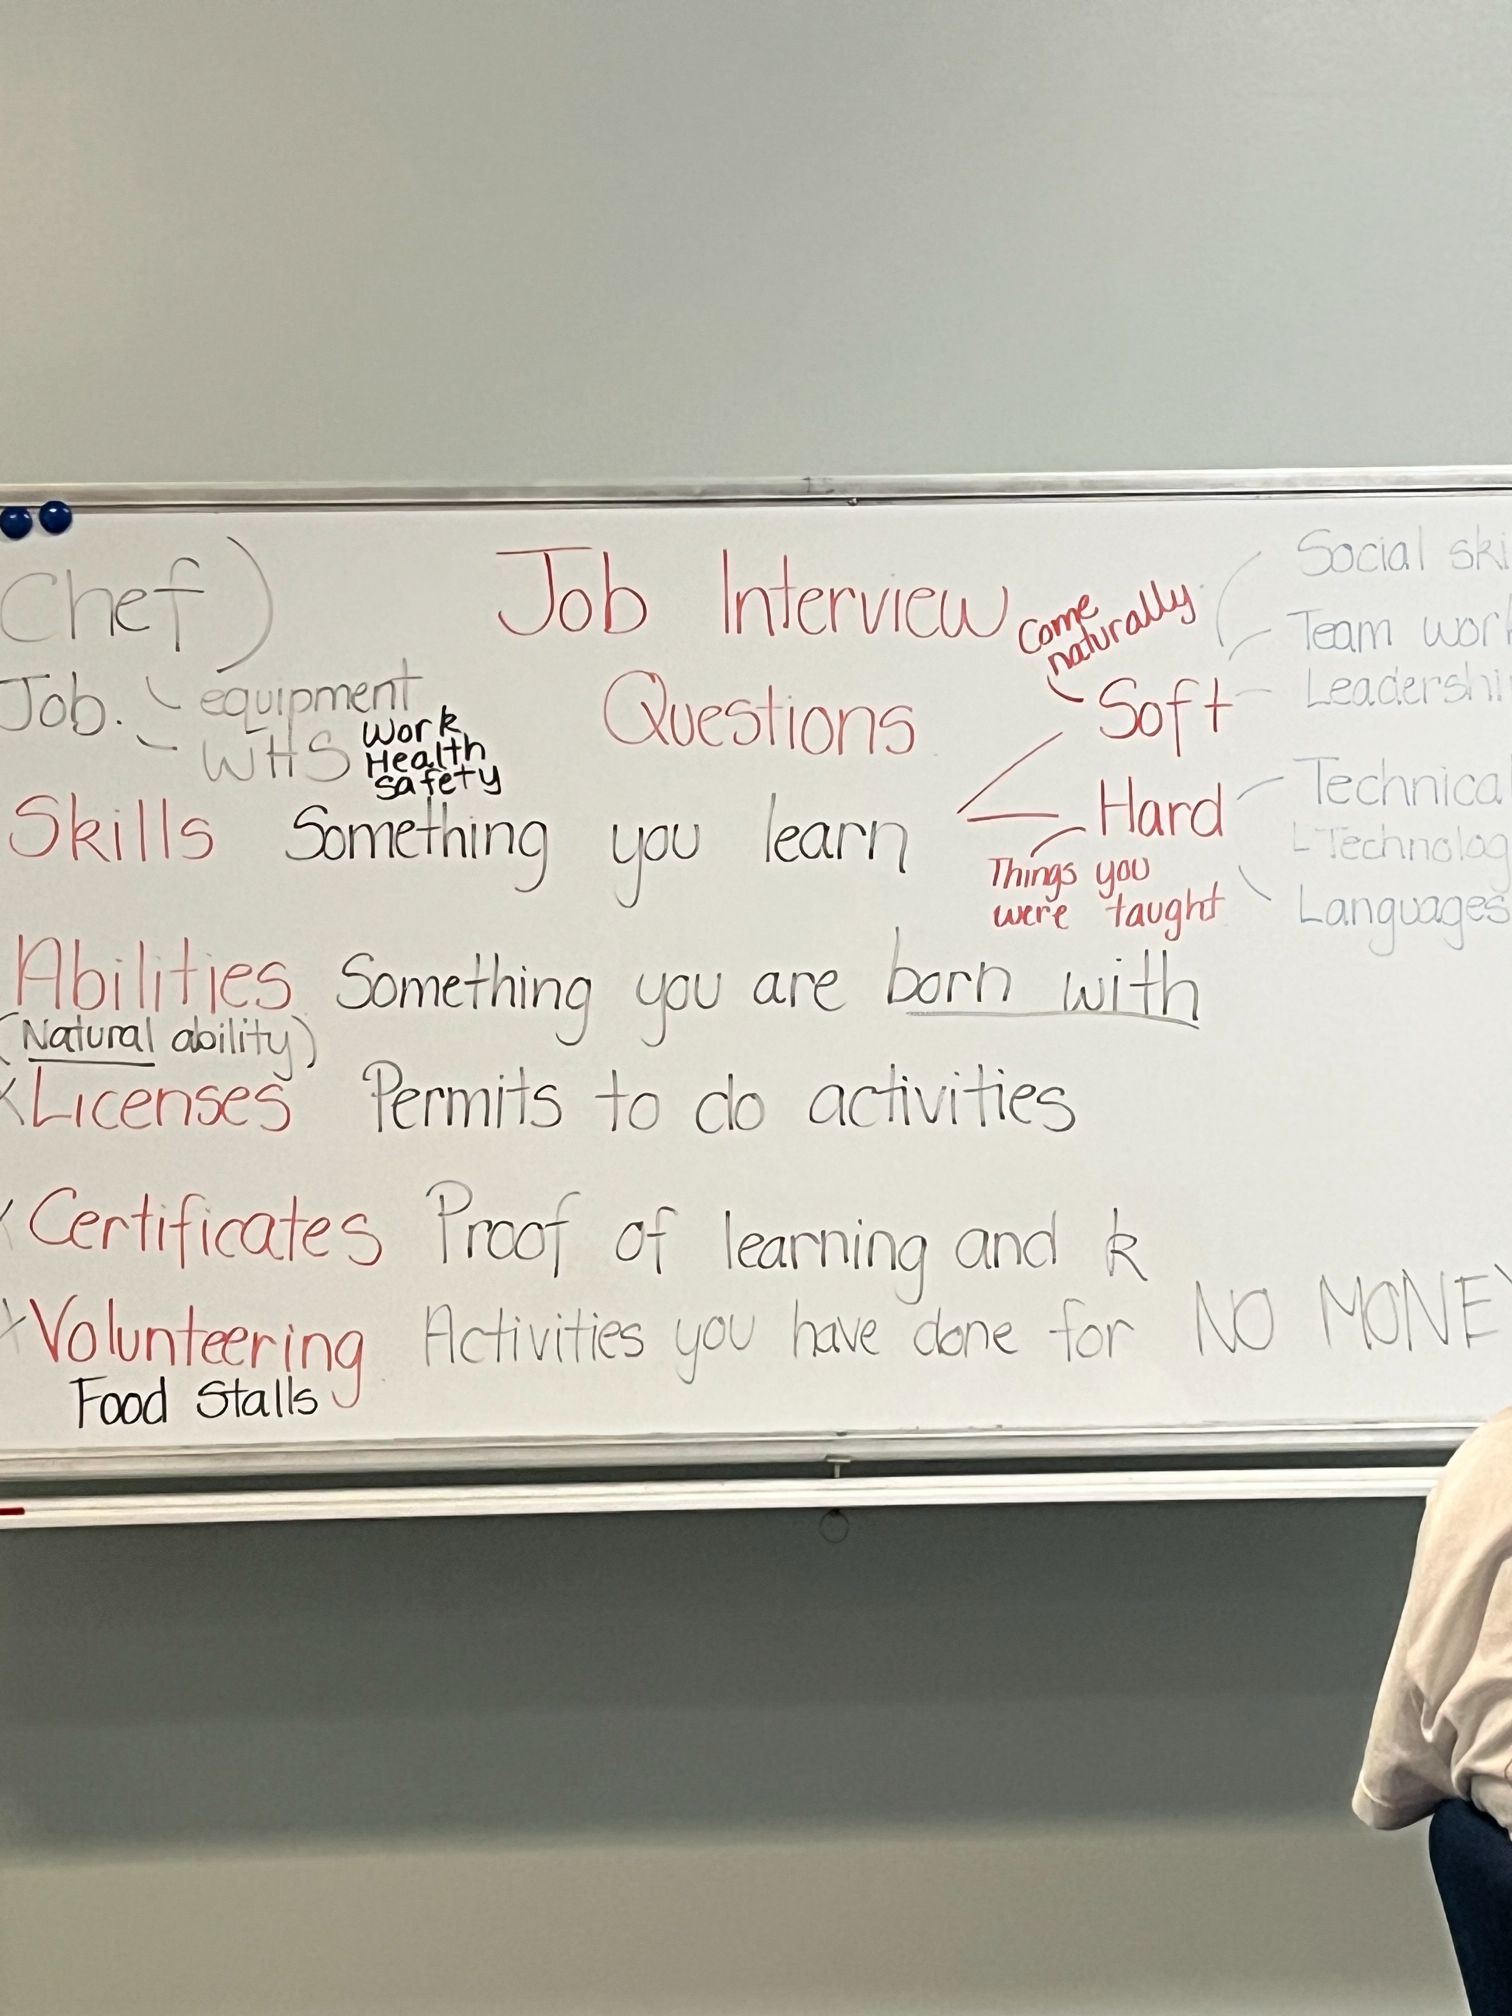 Chef)
Job Interview
Questions
Job. equipment
WHS Work
Health
Safety
Come
naturally
Soft
Social ski
Team work
Leadershi
Hard
Things you
were taught
Technical
Technolog
Languages
Skills Something you learn
Abilities Something you are born with
(Natural ability)
Licenses Permits to do activities
Certificates Proof of learning and k
Volunteering Activities you have done for NO MONEY
Food Stalls